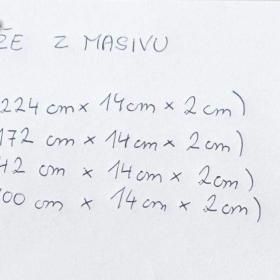 ŽE Z MASIVU
224 cm × 14 cm × 2 cm)
172 cm × 14 cm × 2 cm)
42 cm × 14 cm × 2 cm)
00 cm × 14 cm × 2 cm)